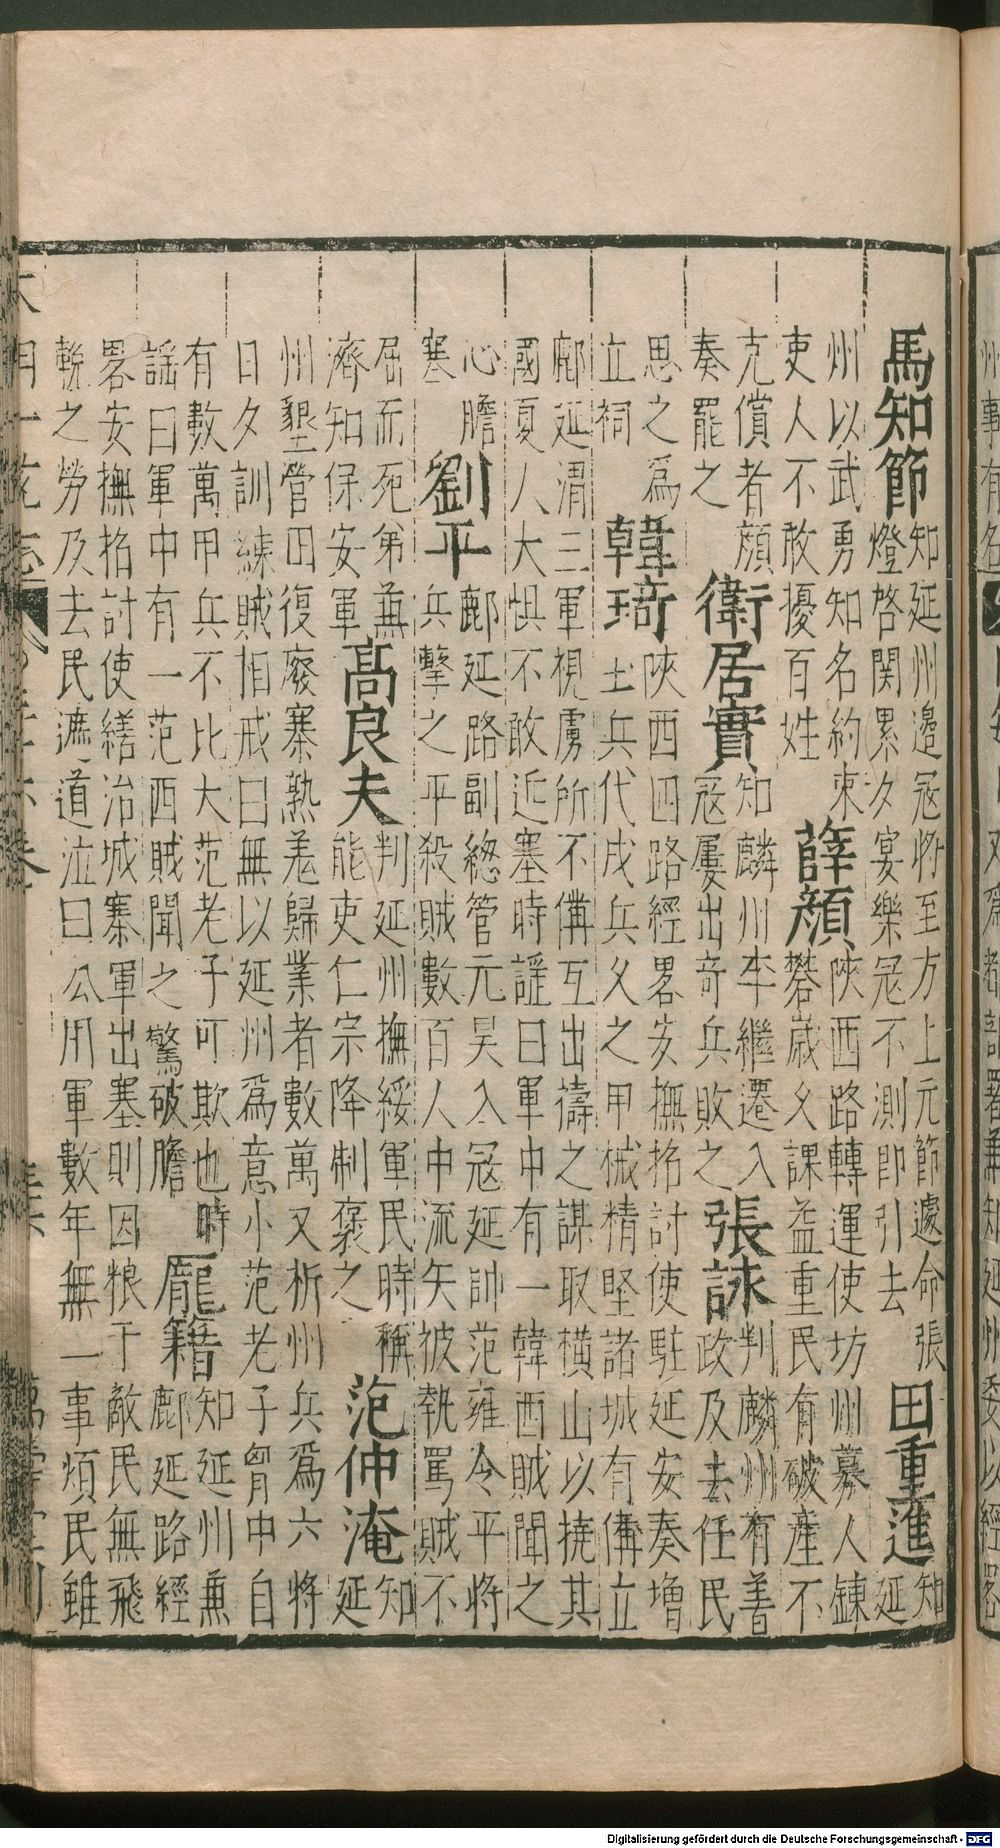 馬知節
知延州邊冦將至方上元節遽命張
燈啓関累夕宴樂冦不測即引去
田重進
知
延
州以武勇知名約束
吏人不敢擾百姓
薛顔
陝西路轉運使坊州募人錬
礬嵗乆課益重民有破產不
克償者顔
奏罷之
衛居實
知麟州李繼遷入
冦屢出竒兵敗之
張詠
判麟州有善
政及去任民
思之為
立祠
韓琦
陝西四路經畧安撫招討使駐延安奏增
土兵代戍兵乆之甲械精堅諸城有備立
鄜延渭三軍視虜所不備互出禱之謀取橫山以撓其
國夏人大惧不敢近塞時謡曰軍中有一韓西賊聞之
心膽
寒
劉平
鄜延路副緫管元昊入冦延帥范雍令平將
兵擊之平殺賊數百人中流矢被執罵賊不
屈而死弟兼
濟知保安軍
高良夫
判延州撫綏軍民時稱
能吏仁宗降制褒之
范仲淹
知
延
州墾營田復廢寨熟羗歸業者數萬又析州兵為六將
日夕訓練賊相戒曰無以延州為意小范老子胷中自
有數萬甲兵不比大范老子可欺也時
謡曰軍中有一范西賊聞之驚破膽
龎籍
知延州兼
鄜延路經
畧安撫招討使繕治城寨軍出塞則因粮于敵民無飛
輓之勞及去民遮道泣曰公用軍數年無一事煩民雖
Digitalisierung gefördert durch die Deutsche Forschungsgemeinschaft - DFG